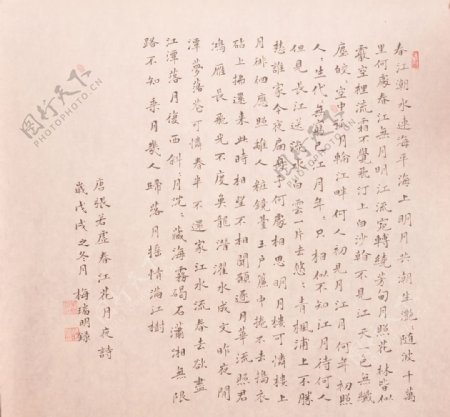 春江潮水連海平海上明月共潮生灔々随波千萬
里何處春江無月明江流宛轉繞芳甸月照花林皆似
霰空裡流霜不覺飛汀上白沙看不見江天一色無纖
塵皎々空中孤月輪江畔何人初見月江月何年初照
人々生代々無窮已江月年々只相似不知江月待何人
但見長江送流水白雲一片去悠々青楓浦上不勝
愁誰家今夜扁舟子何處相思明月樓可憐樓上
月徘徊應照離人粧鏡臺玉戶簾中捲不去搗衣
砧上拂還來此時相望不相聞願逐月華流照君
鴻雁長飛光不度魚龍潛躍水成文昨夜閒
潭夢落花可憐春半不還家江水流春去欲盡
江潭落月復西斜々月沉々藏海霧碣石瀟湘無限
路不知乘月幾人歸落月搖情滿江樹
唐張若虛春江花月夜詩
歲戊戌之冬月 梅瑞明錄